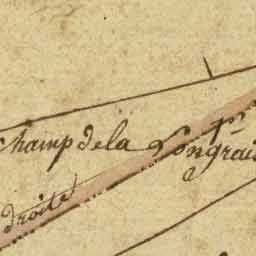 champ de la Longrai
droite